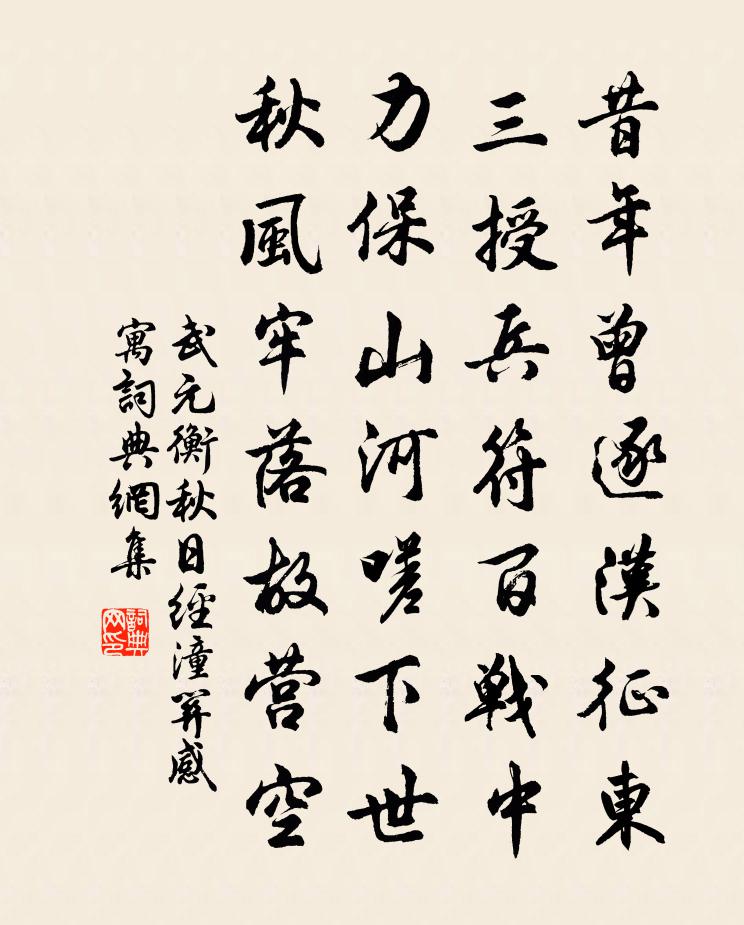 昔年曾逐漢征東
三授兵符百戰中
力保山河嗟下世
秋風牢落故营空
武元衡秋日經潼關感
寓詞典網集
詞典
网印